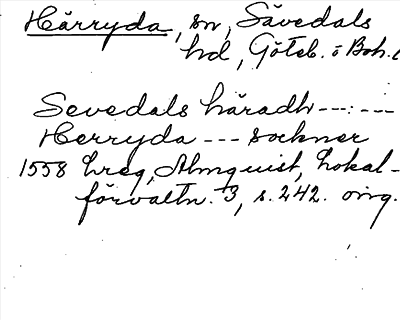 Härryda, sn, Sävedals
hd, Göteb. o Boh. l
Sevedals häradh ---:---
Herryda --- sockner
1558 hreg, Almquist, Lokal-
förvaltn. 3, s. 242. omg.